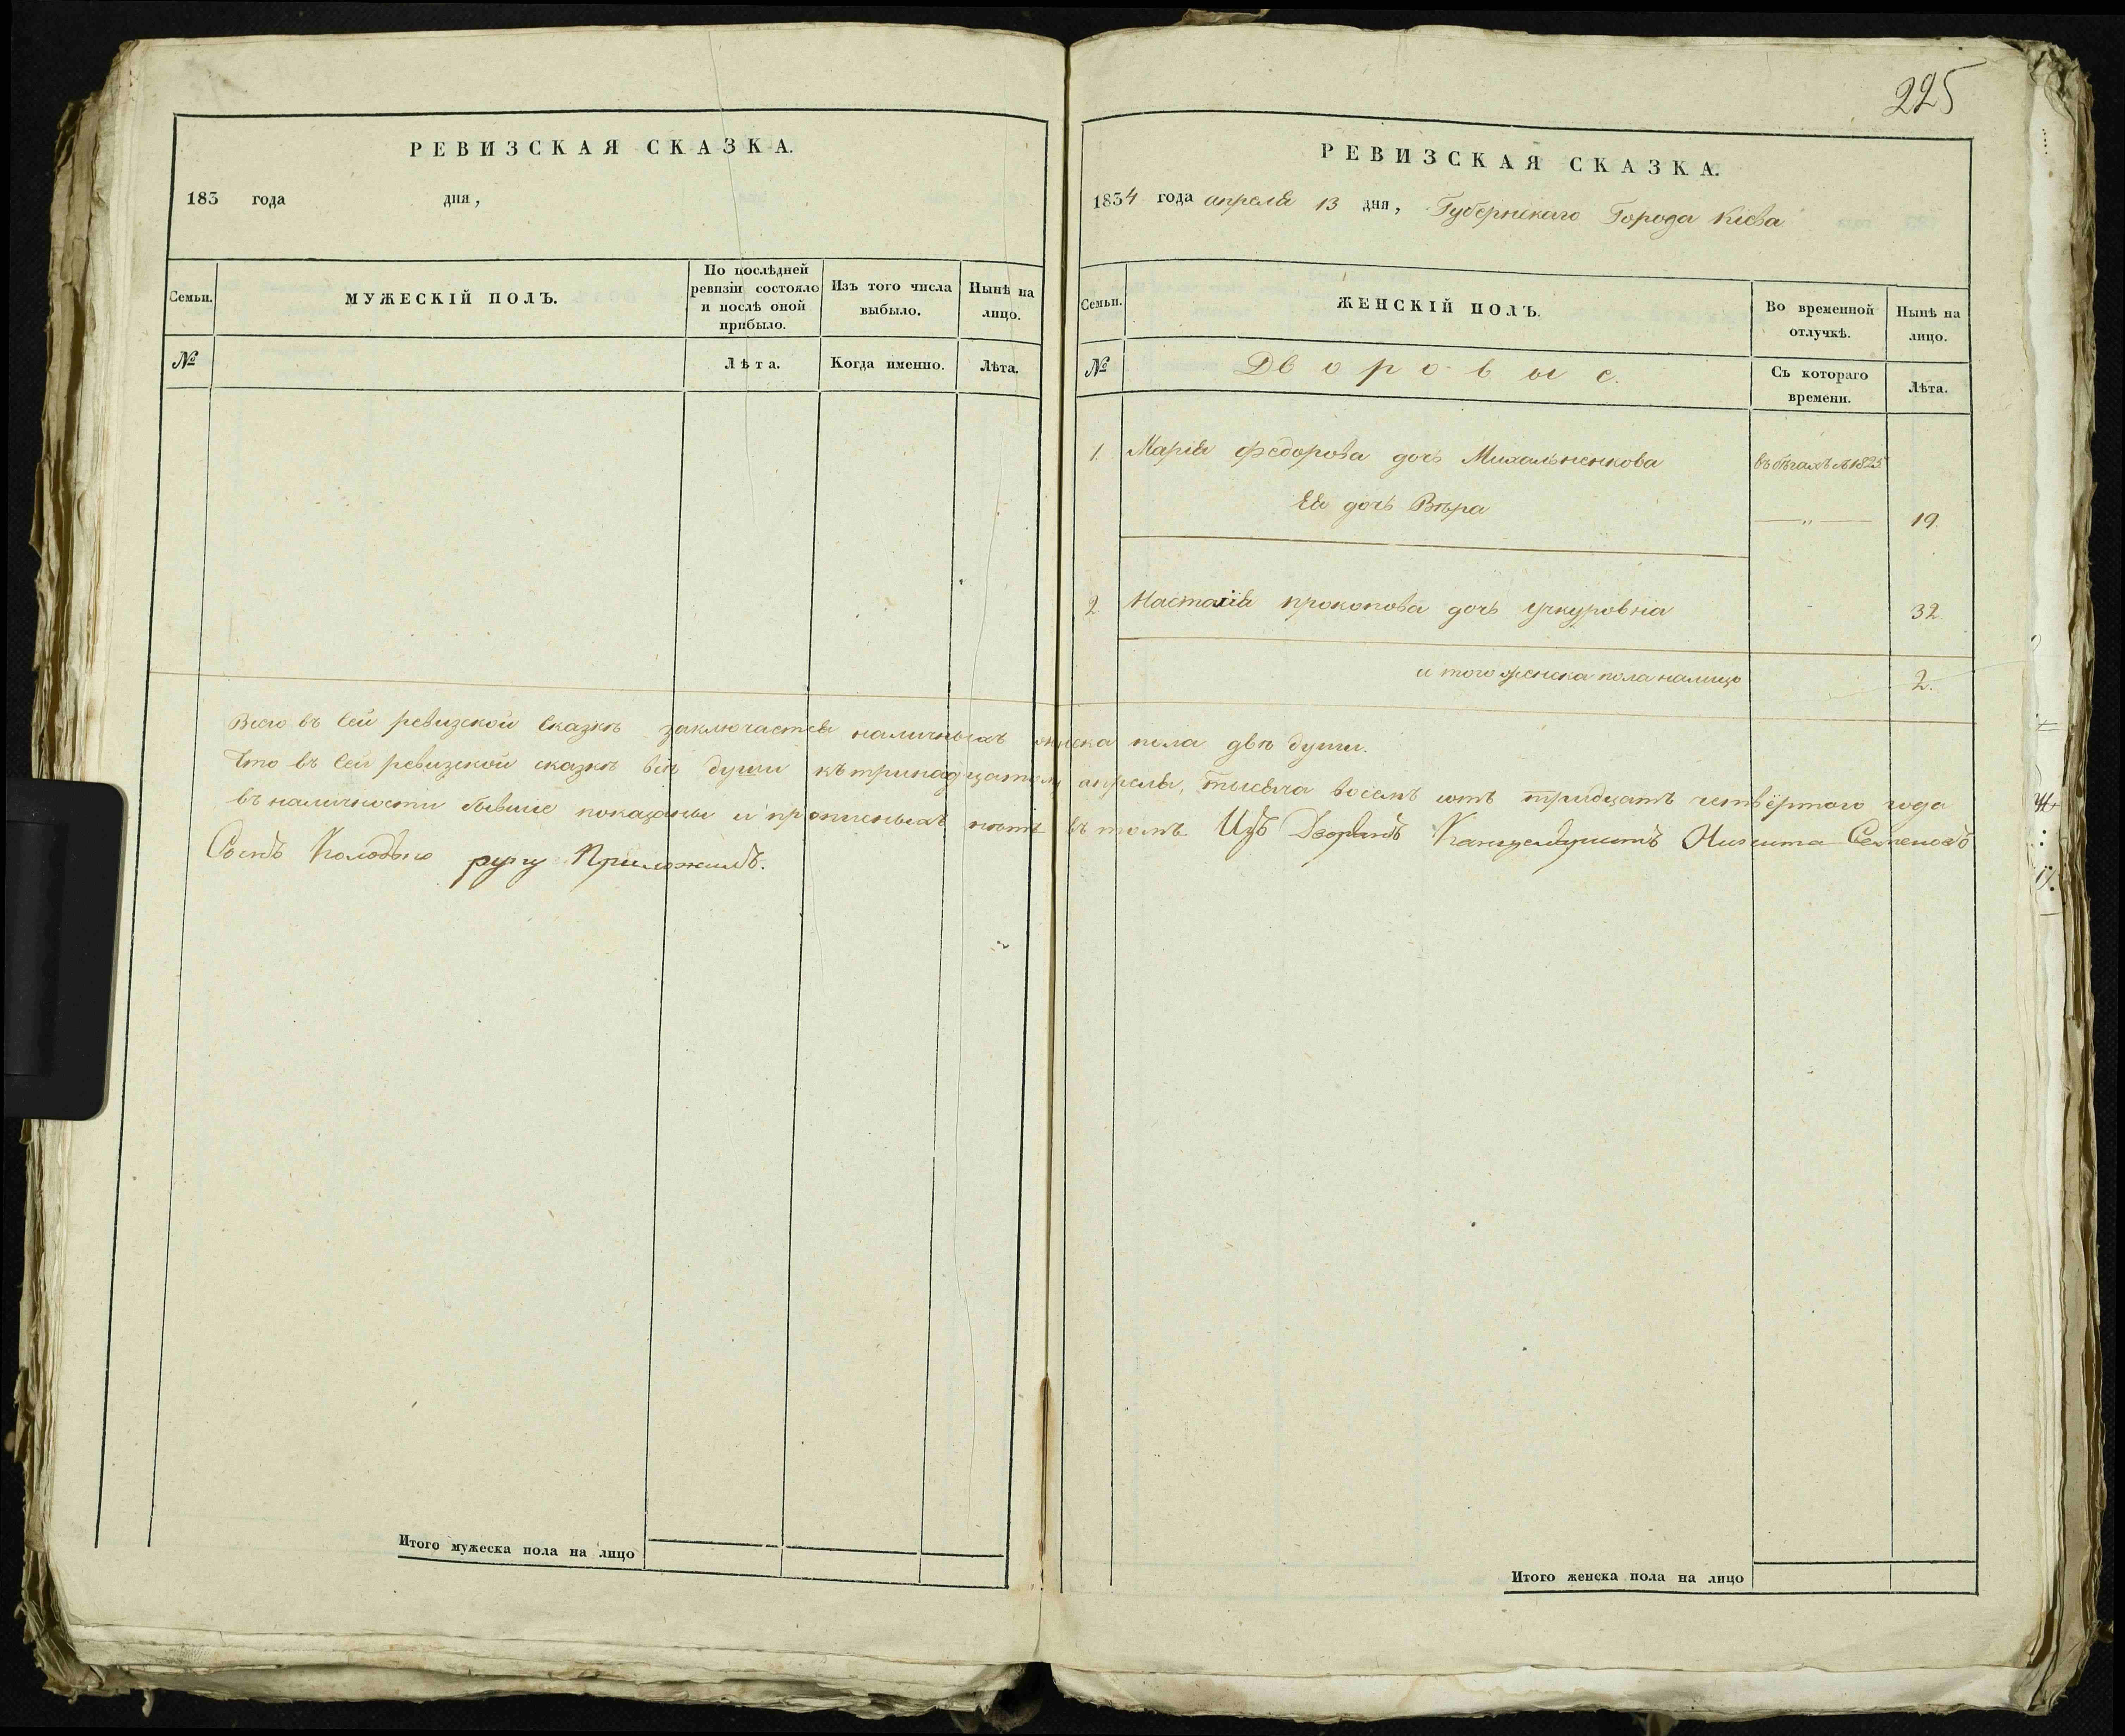 РЕВИЗСКАЯ СКАЗКА.
183 года дня,
Семьи.
МУЖЕСКІЙ ПОЛЪ.
По послѣдней ревизіи состояло и послѣ оной прибыло.
Изъ того числа выбыло.
Нынѣ на лицо.
№
Лѣта.
Когда именно.
Лѣта.
Итого мужеска пола на лицо
225
РЕВИЗСКАЯ СКАЗКА.
1834 года апреля 13 дня, Губернскаго Города Кіева
Семьи.
ЖЕНСКІЙ ПОЛЪ.
Во временной отлучкѣ.
Нынѣ на лицо.
№
Дворовые.
Съ котораго времени.
Лѣта.
1. Марія Федорова дочь Михальненкова въ бѣгахъ 1825
Ея дочь Вѣра — „ — 19.
2 Настасія Прокопова дочь Учкуровна 32.
и того женска пола налицо 2.
Всего въ сей ревизской сказкѣ заключается наличныхъ женска пола двѣ души.
Что въ сей ревизской сказкѣ всѣ души къ тринадцатому апреля, тысяча восемъ сотъ тридцать четвёртаго года
въ наличности бывшіе показаны и прописныхъ нѣтъ въ томъ Изъ Дворянъ Канцеляристъ Никита Семеновъ
Сынъ руку Приложилъ.
Итого женска пола на лицо